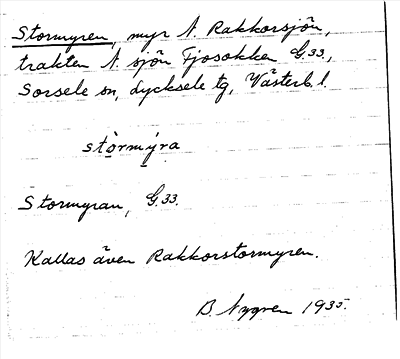 Stormyren, myr N. Rakkorsjön,
trakten N. sjön Fjosokken G.33.,
Sorsele sn, Lycksele tg, Västerb. l.
stòrmýra
Stormyran, G.33.
Kallas även Rakkorstormyren.
B. Nygren 1935.